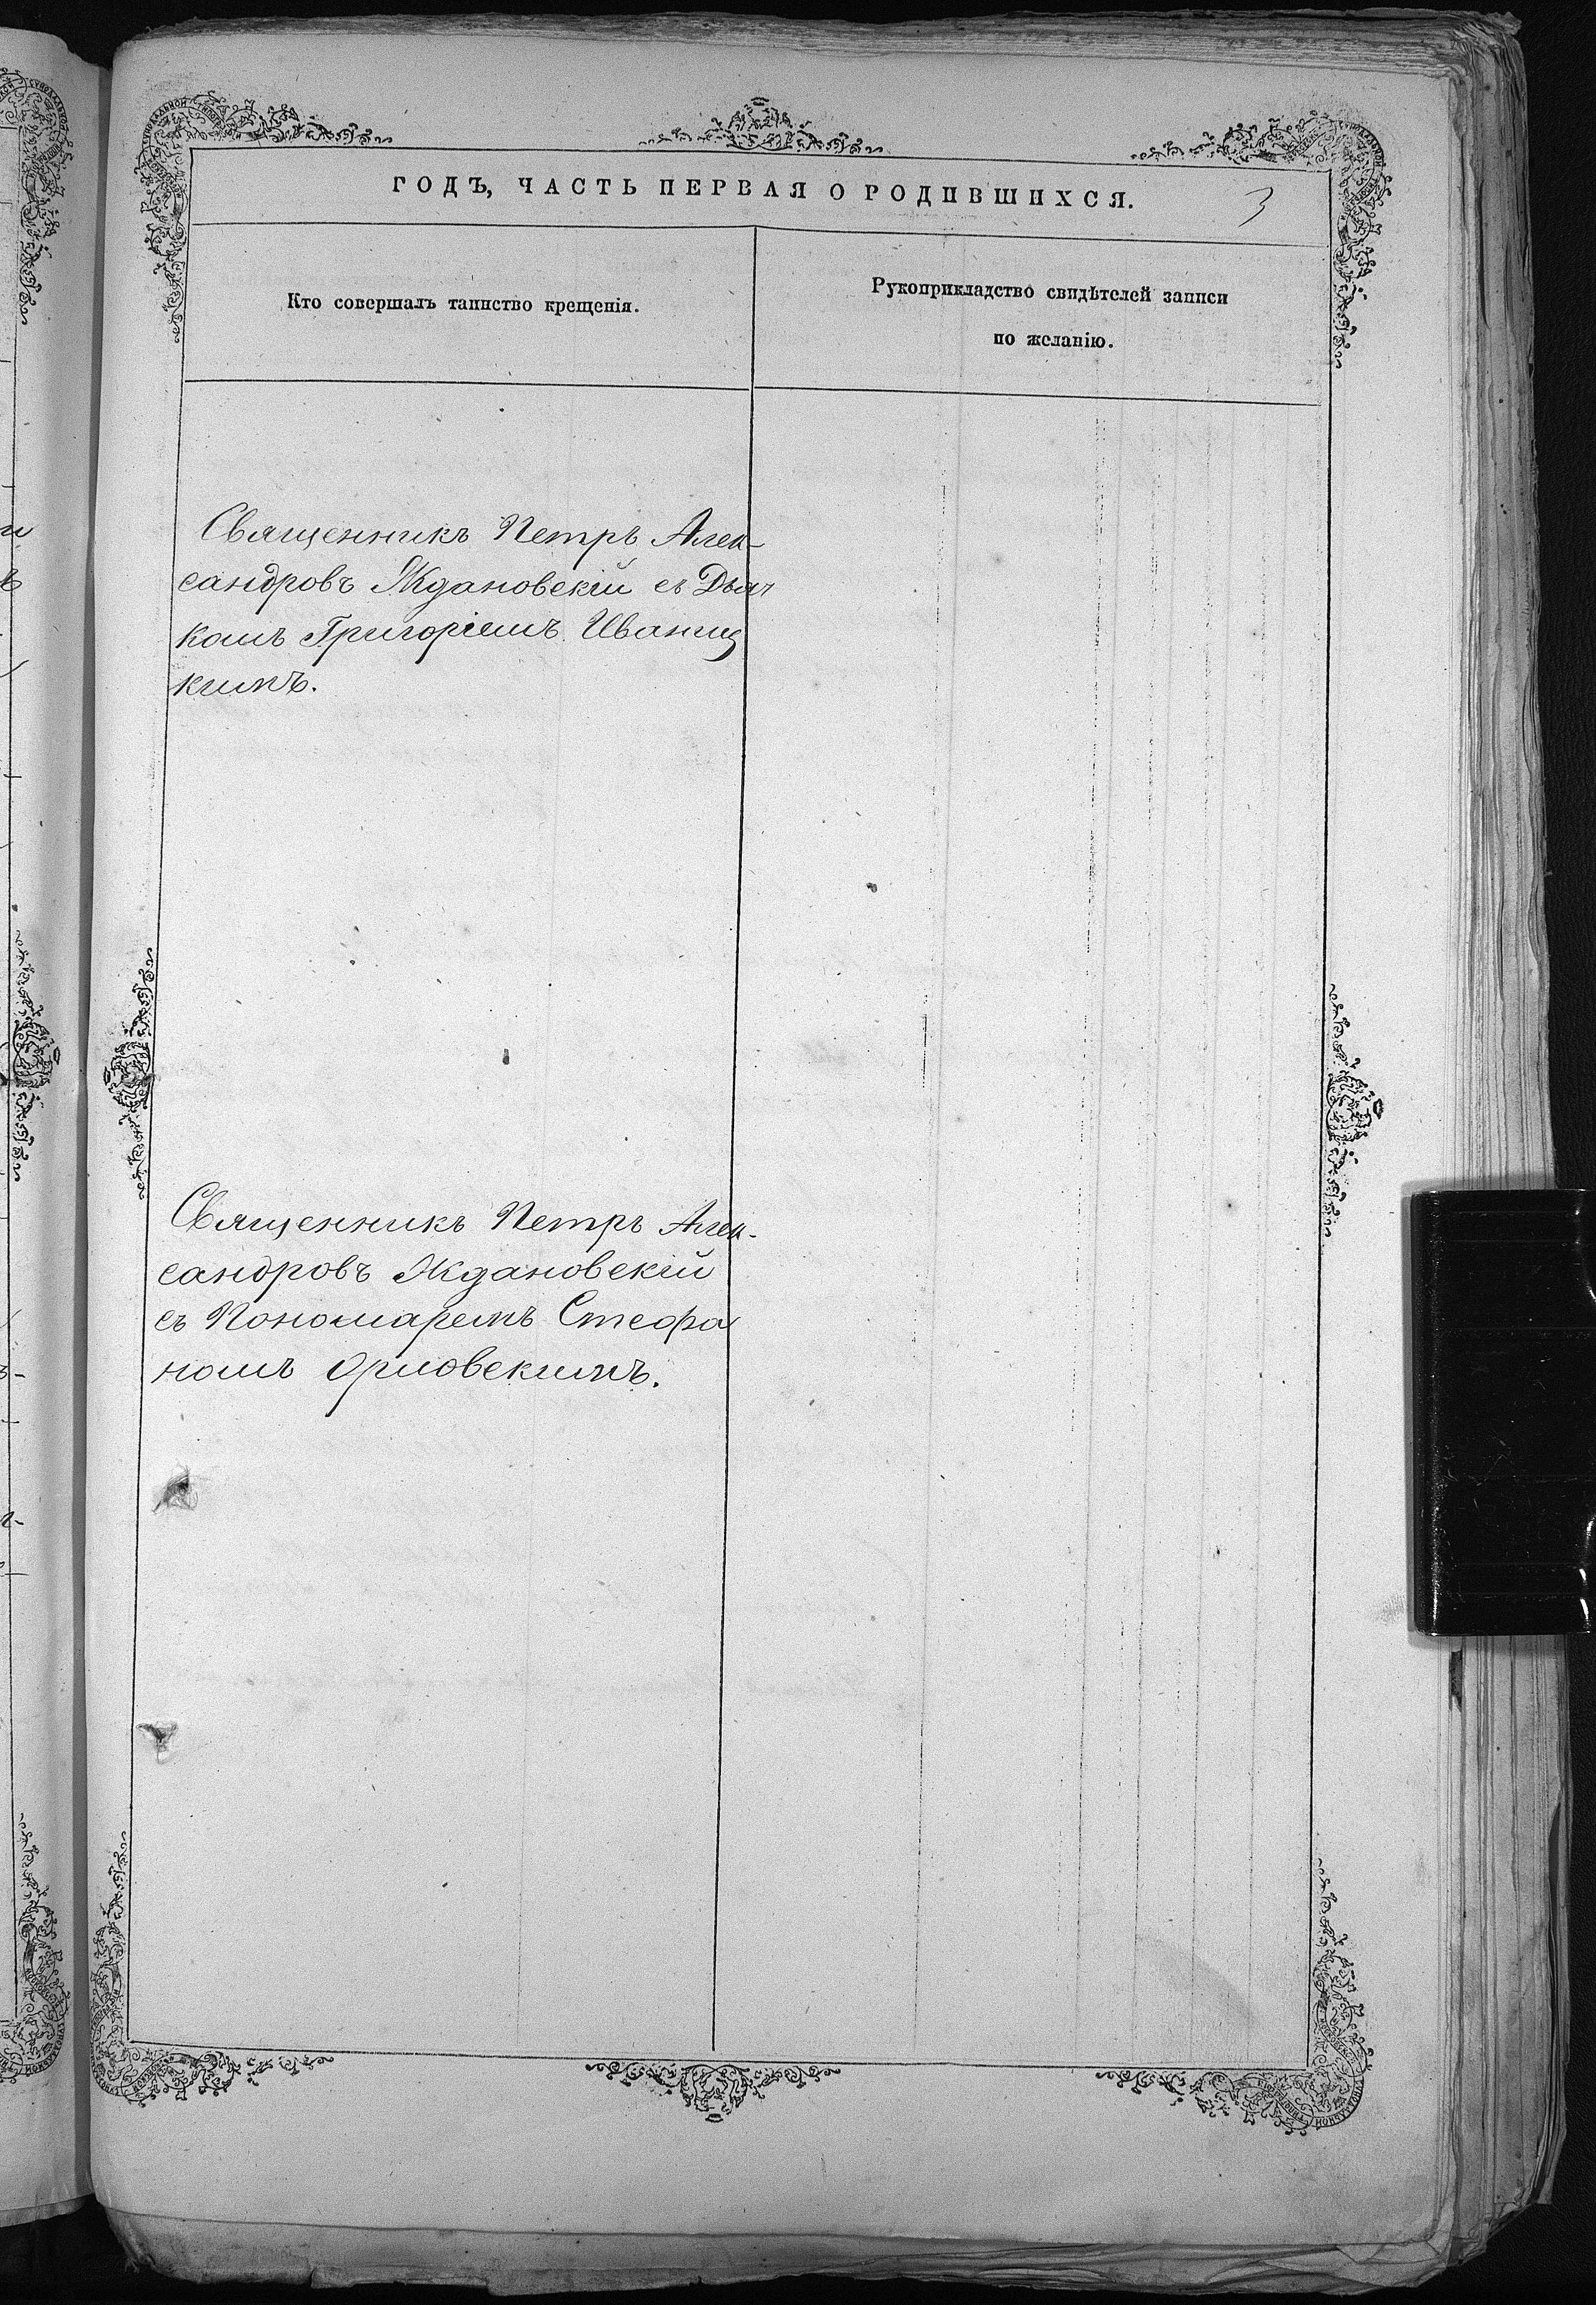 ГОДЪ, ЧАСТЬ ПЕРВАЯ О РОДИВШИХСЯ.
3
Кто совершалъ таинство крещенія.
Рукоприкладство свидѣтелей записи
по желанію.
Священникъ Петръ Алек-
сандровъ Ждановскій съ Дьяч
комъ Григоріемъ Иваниц
кимъ.
Священникъ Петръ Алек-
сандровъ Ждановскій
съ Пономаремъ Стефа
номъ Орловскимъ.